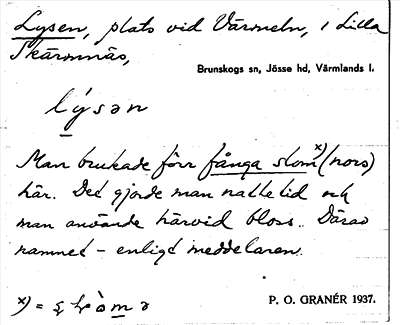 Lysen, plats vid Värmeln, i Lilla
Skärmnäs,
Brunskogs sn, Jösse hd, Värmlands l.
lýsən
Man brukade förr fånga slom x) (nors)
här. Det gjorde man nattetid och
man använde härvid bloss. Därav
namnet – enligt meddelaren.
x) =
P. O. GRANÉR 1937.